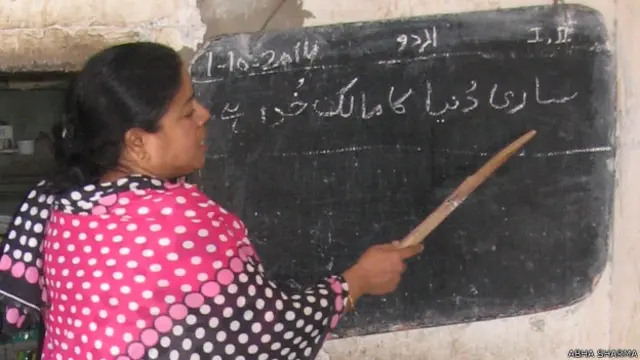 1-10-2014 اردو I, II
ساری دُنیا کا مالک خُدا ہے
ABHA SHARMA